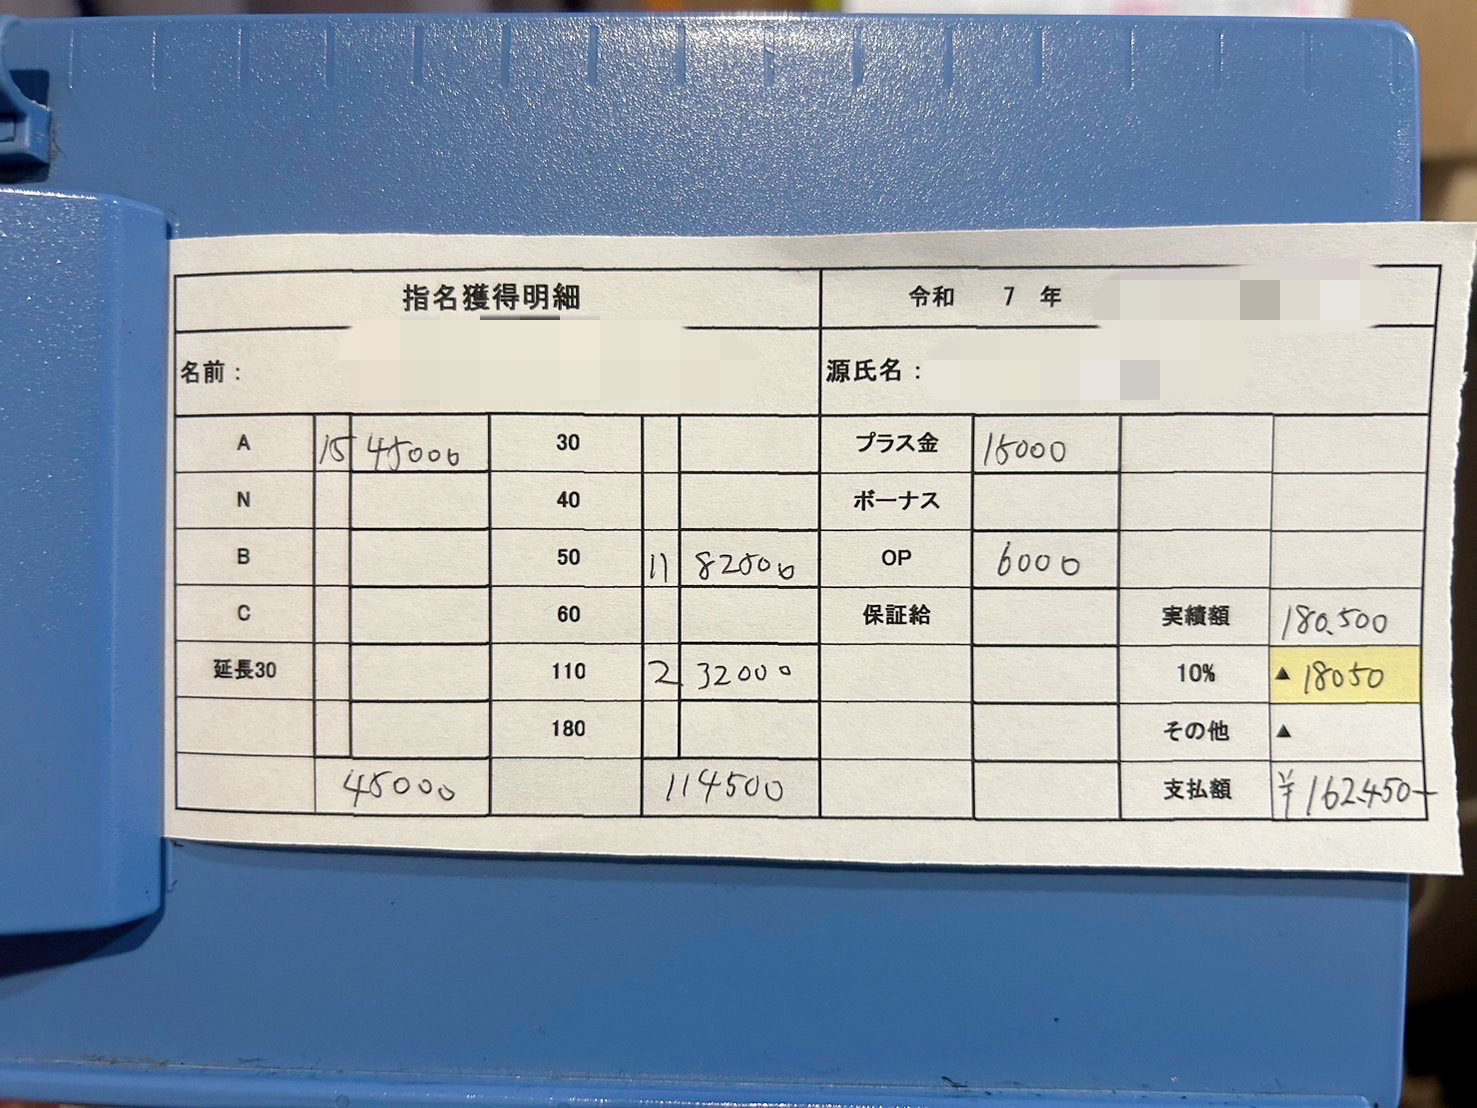 指名獲得明細 令和 7 年
名前： 源氏名：
A 15 45000 30 プラス金 15000
N 40 ボーナス
B 50 11 82500 OP 6000
C 60 保証給 実績額 180,500
延長30 110 2 32000 10% ▲ 18050
180 その他 ▲
45000 114500 支払額 ¥162,450-